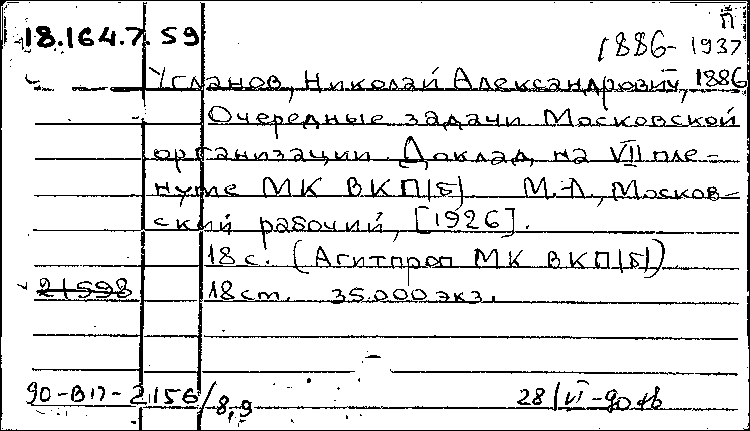 П
18.164.7.59
1886-1937
Угланов, Николай Александрович, 1886
Очередные задачи Московской
организации. Доклад на VII пле-
нуме МК ВКП(б). М.-Л., Москов-
ский рабочий, [1926].
18 с. (Агитпроп МК ВКП(б))
21598 18 cm. 35.000 экз.
90-В17-2156/8,9 28/VI-90